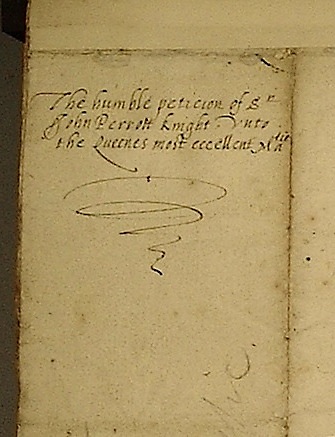 The humble peticion of Sr
John Perrott knight vnto
the Queenes most excellent Matie